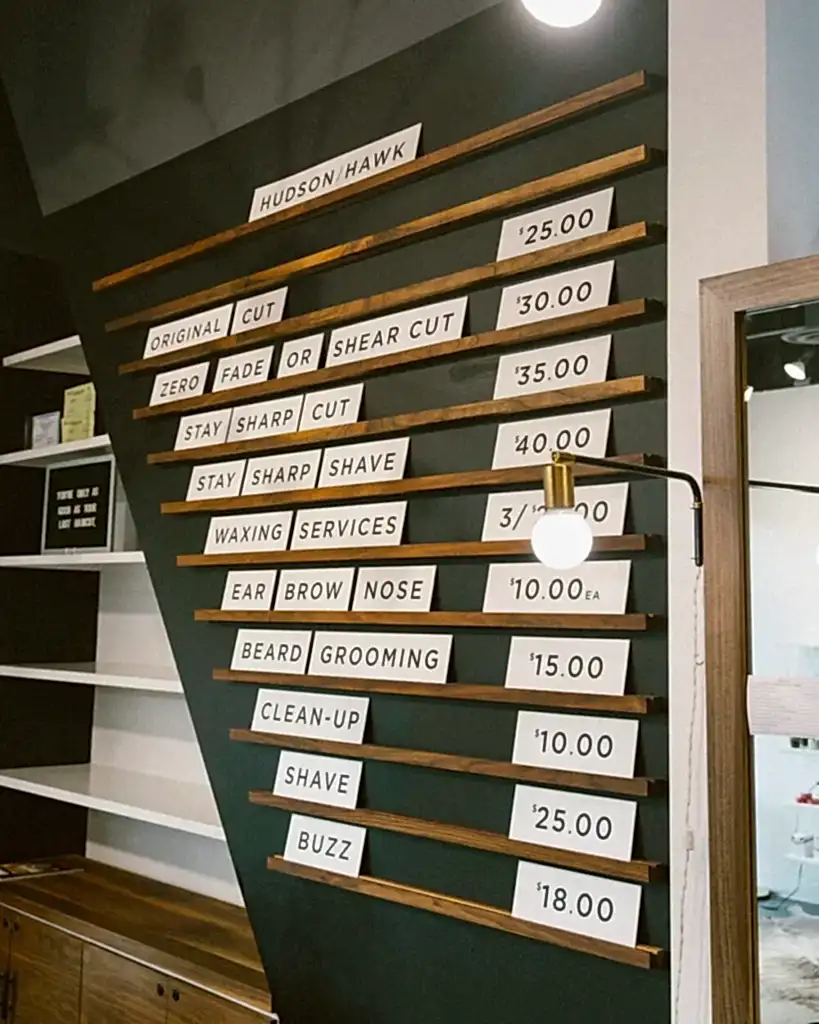 HUDSON/HAWK
ORIGINAL CUT $25.00
ZERO FADE OR SHEAR CUT $30.00
STAY SHARP CUT $35.00
STAY SHARP SHAVE $40.00
WAXING SERVICES
EAR BROW NOSE $10.00 EA
BEARD GROOMING $15.00
CLEAN-UP $10.00
SHAVE $25.00
BUZZ $18.00
YOU'RE ONLY AS
GOOD AS YOUR
LAST HAIRCUT.